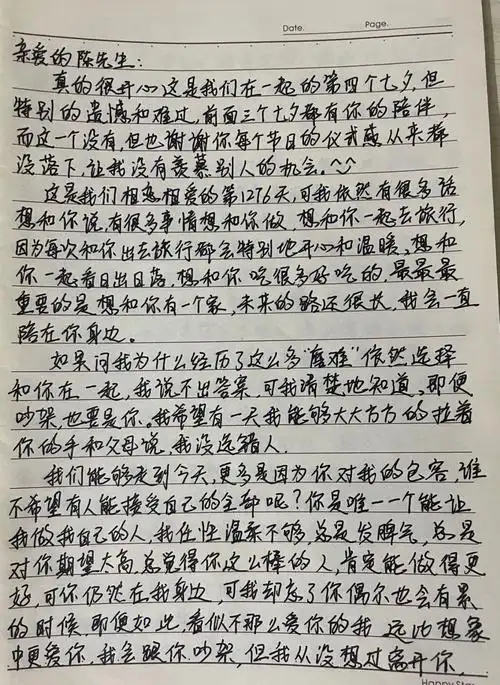 Date.    Page.
亲爱的陈先生：
真的很开心这是我们在一起的第四个七夕，但
特别的遗憾和难过，前面三个七夕都有你的陪伴，
而这一个没有，但也谢谢你每个节日的仪式感从来都
没落下，让我没有羡慕别人的机会。^^
这是我们相恋相爱的第1276天，可我依然有很多话
想和你说，有很多事情想和你做，想和你一起去旅行，
因为每次和你出去旅行都会特别地开心和温暖，想和
你一起看日出日落，想和你吃很多好吃的，最最最
重要的是想和你有一个家，未来的路还很长，我会一直
陪在你身边。
如果问我为什么经历了这么多“磨难”依然选择
和你在一起，我说不出答案，可我清楚地知道，即便
吵架，也要是你。我希望有一天我能够大大方方的拉着
你的手和父母说，我没选错人.
我们能够走到今天，更多是因为你对我的包容，谁
不希望有人能接受自己的全部呢？你是唯一一个能让
我做我自己的人，我任性温柔不够，总是发脾气，总是
对你期望太高，总觉得你这么棒的人，肯定能做得更
好，可你仍然在我身边，可我却忘了你偶尔也会有累
的时候，即便如此，看似不那么爱你的我 远比想象
中更爱你，我会跟你吵架，但我从没想过离开你，